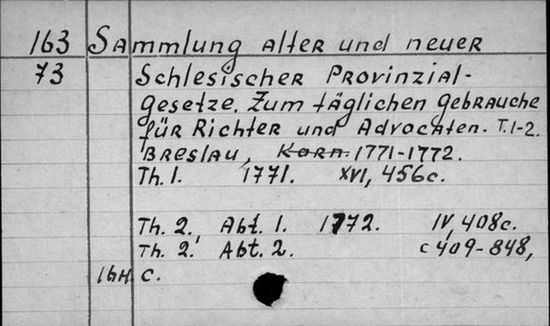 163 Sammlung alter und neuer
73 Schlesischer Provinzial-
gesetze. Zum täglichen gebrauche
für Richter und Advocaten. T.1-2.
Breslau, Korn. 1771-1772.
Th. 1. 1771. XVI, 456c.
Th. 2., Abt. 1. 1772. IV, 408c.
Th. 2. Abt. 2. c 409-848,
16н. c.